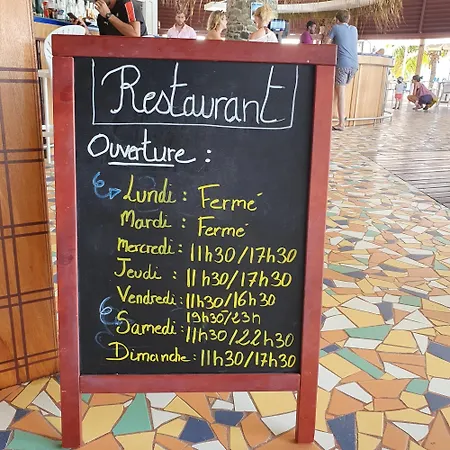 Restaurant
Ouverture :
Lundi : Fermé
Mardi : Fermé
Mercredi : 11h30/17h30
Jeudi : 11h30/17h30
Vendredi : 11h30/16h30
19h30/23h
Samedi : 11h30/22h30
Dimanche : 11h30/17h30